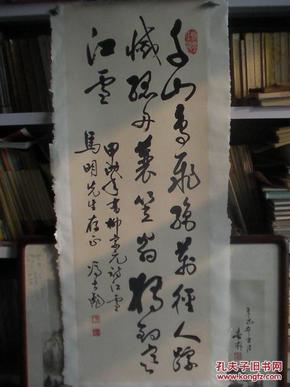 千山鳥飛绝萬徑人踪
滅孤舟蓑笠翁獨釣寒
江雪
年書柳宗元詩江雪
馬明先生存正
孔夫子旧书网